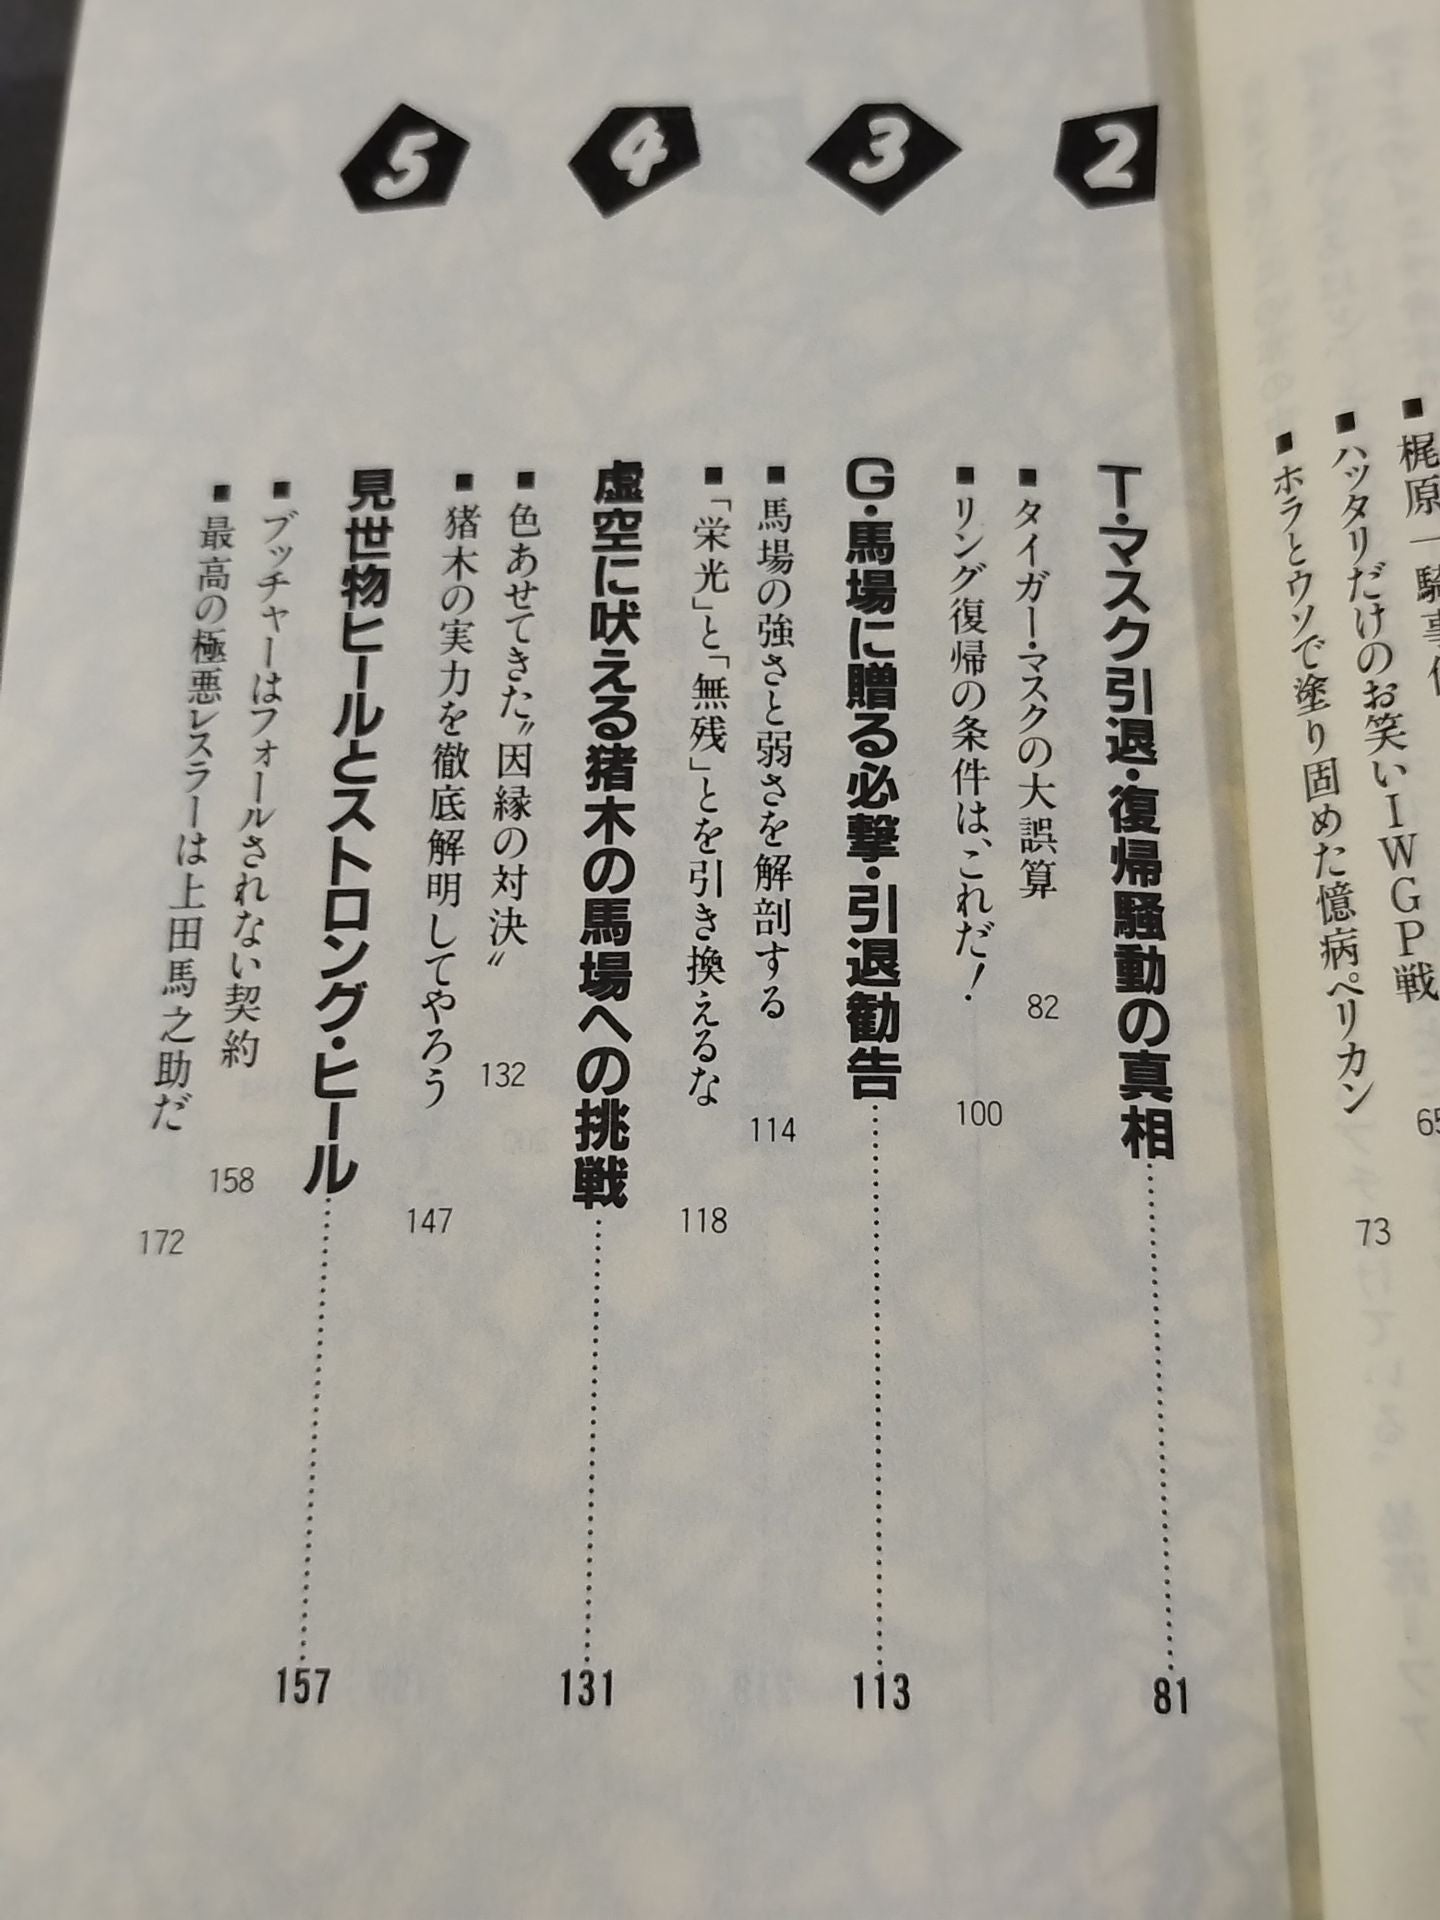 ■ハッタリだけのお笑いIWGP戦
65
■ホラとウソで塗り固めた憶病ペリカン
73
2
T・マスク引退・復帰騒動の真相
81
■タイガー・マスクの大誤算
82
■リング復帰の条件は、これだ！
100
3
G・馬場に贈る必撃・引退勧告
113
■馬場の強さと弱さを解剖する
114
■「栄光」と「無残」とを引き換えるな
118
4
虚空に吠える猪木の馬場への挑戦
131
■色あせてきた〝因縁の対決〟
132
■猪木の実力を徹底解明してやろう
147
5
見世物ヒールとストロング・ヒール
157
■ブッチャーはフォールされない契約
158
■最高の極悪レスラーは上田馬之助だ
172